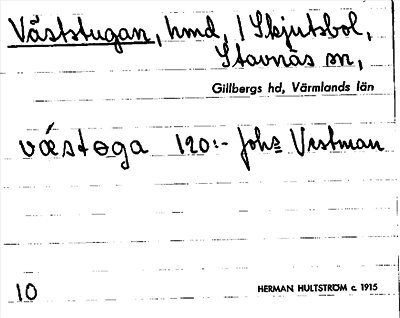 Väststugan, hmd, i Skjutsbol,
Stavnäs sn,
Gillbergs hd, Värmlands län
vǽstɵga 120:- Johs Vestman
10 HERMAN HULTSTRÖM c. 1915